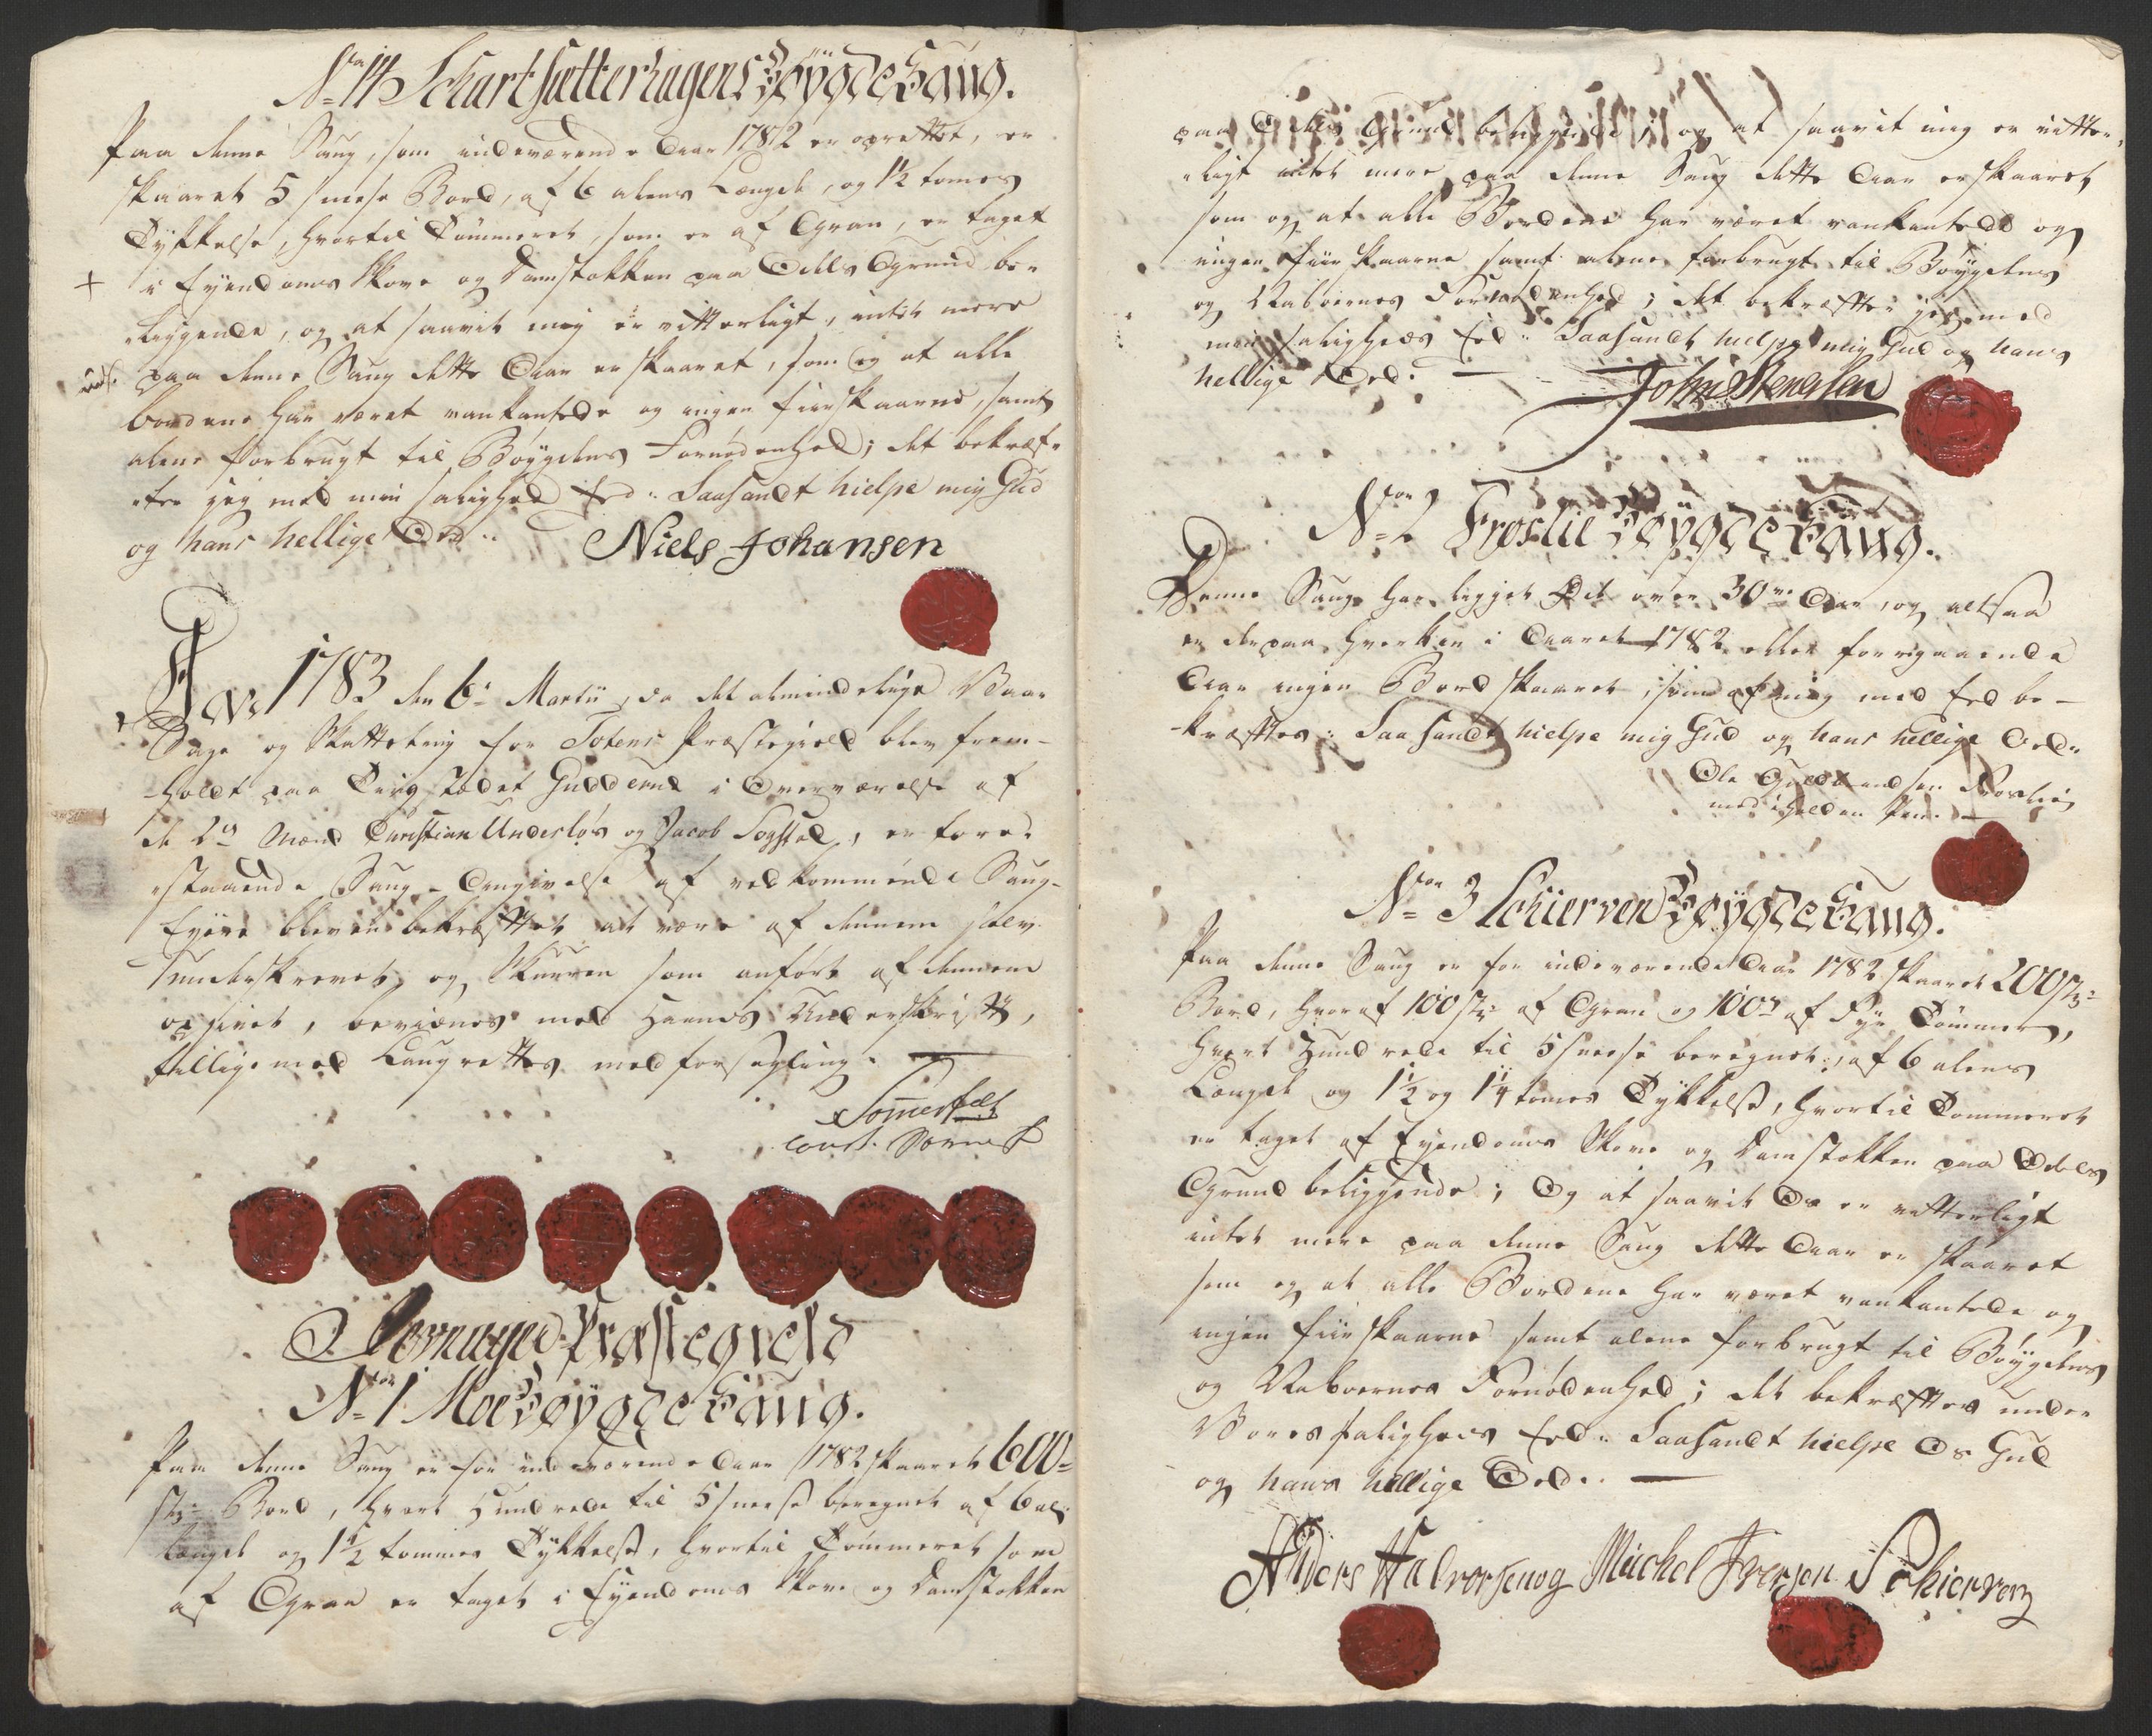 No 14 Schartsætterhagens Bøygde Saug.
Paa denne Saug, som indeværende Aar 1782 er oprettet, er
skaaret 5 sneese Bord, af 6 alens Længde, og 1½ tomes
Tykkelse, hvortil Tømmeret, som er af Gran, er taget
i Eyendoms Skove og Damstokken paa Odels Grund be-
liggende, og at saavit mig er vitterligt, intet mere
paa denne Saug dette Aar er skaaret, som og at alle
bordene har været vankantede og ingen fiirskaarne, samt
alene forbrugt til Bøygdens Fornødenhed; det bekræf-
ter jeg med min saligheds Eed: Saasandt hielpe mig Gud
og hans hellige Ord.
Niels Johansen
Ao 1783 den 6te Martii, da det almindelige Vaar
Sage og Skatteting for Totens Præstegield blev frem-
holdt paa Tingstædet Gudderud i Overværelse af
de 2de Mænd Christian Undesløs og Jacob Sogstad, er fore-
staaende Saug-Angivelse af vedkommende Saug-
Eyere bleven bekræftet at være af dennem selv
underskrevet, og Skuuren som anført af dennem
opgivet, bevidnes med Hænds Underskrifft,
tilligemed Laugrettes medforseyling.
Somerfelt
Const. Sorensk
Præstegield
No 1 Moe Bøygde Saug.
Paa denne Saug er for indeværende Aar 1782 skaaret 600
st: Bord, hvert Hundrede til 5 sneese beregnet af 6 al:
længde og 1½ tommes Tykkelse, hvortil Tømmeret som
af Gran er taget i Eyendoms Skove og Damstokken
paa Odels Grund beliggende; og at saavit mig er vitter-
ligt intet mere paa denne Saug dette Aar er skaaret
som og at alle Bordene har været vankantede og
ingen fiirskaarne samt alene forbrugt til Bøygdens
og Naboernes Fornødenhed; det bekræfter jeg med
min saligheds Eed: Saasandt hielpe mig Gud og hans
hellige Ord.
John Stenersen
No 2 Froslie Bøygde Saug.
Denne Saug har ligget øde over 30ve Aar, og altsaa
er derpaa hverken i Aaret 1782 eller forrige
Aar ingen Bord skaaret, som af mig med Eed be-
kræfftes: Saasandt hielpe mig Gud og hans hellige Ord.
Ole Gudbrandsen Froslie
med iholden Pen.
No 3 Schierven Bøygde Saug.
Paa denne Saug er for indeværende Aar 1782 skaaret 200 st:
Bord, hvoraf 100 st: af Gran og 100 af Fyr Tømmer,
hvert Hundrede til 5 sneese beregnet, af 6 alens
Længde og 1½ og 1¼ tomes Tykkelse, hvortil Tømmeret
er taget af Eyendoms Skove og Damstokken paa Odels
Grund beliggende; Og at saavit Os er vitterligt
intet mere paa denne Saug dette Aar er skaaret
som og at alle Bordene har været vankantede og
ingen fiirskaarne samt alene forbrugt til Bøygdens
og Naboernes Fornødenhed; det bekræfftes under
Vores saligheds Eed: Saasandt hielpe Os Gud
og hans hellige Ord.
Anders Halvorsen og Michel Iversen Schierven